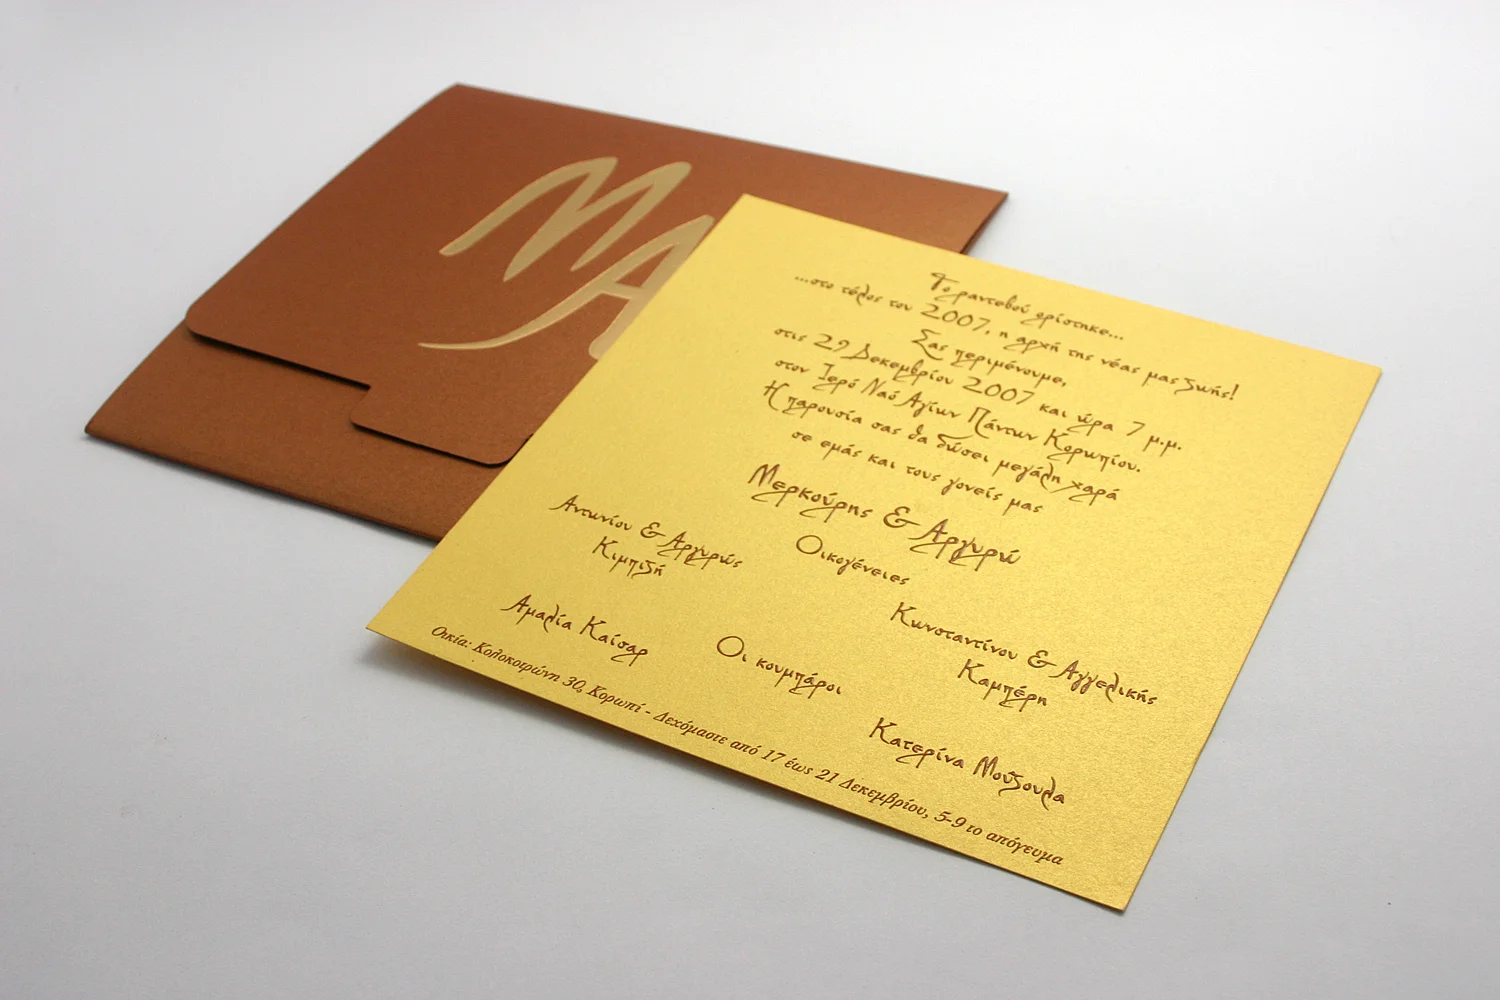 ΜΑ
Το ραντεβού ορίστηκε...
...στο τέλος του 2007, η αρχή της νέας μας ζωής!
Σας περιμένουμε,
στις 29 Δεκεμβρίου 2007 και ώρα 7 μ.μ.
στον Ιερό Ναό Αγίων Πάντων Κορωπίου.
Η παρουσία σας θα δώσει μεγάλη χαρά
σε εμάς και τους γονείς μας
Μερκούρης & Αργυρώ
Οικογένειες
Αντωνίου & Αργυρώς
Κιμπιζή
Κωνσταντίνου & Αγγελικής
Καμπέρη
Οι κουμπάροι
Αμαλία Καίσαρ
Κατερίνα Μούζουλα
Οικία: Κολοκοτρώνη 30, Κορωπί - Δεχόμαστε από 17 έως 21 Δεκεμβρίου, 5-9 το απόγευμα